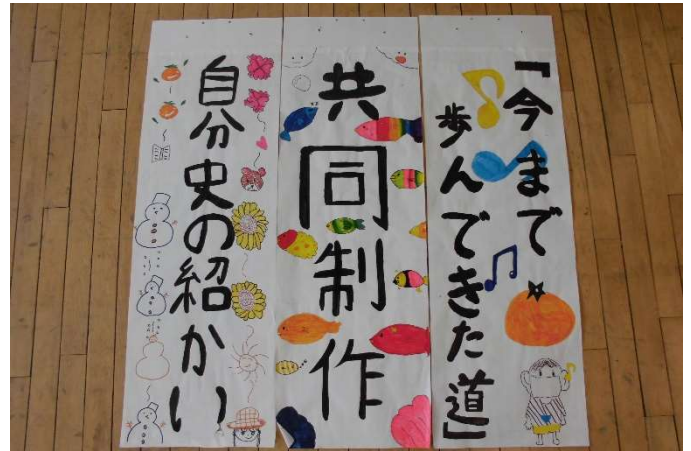 「今まで
歩んできた道」
共同制作
自分史の紹かい